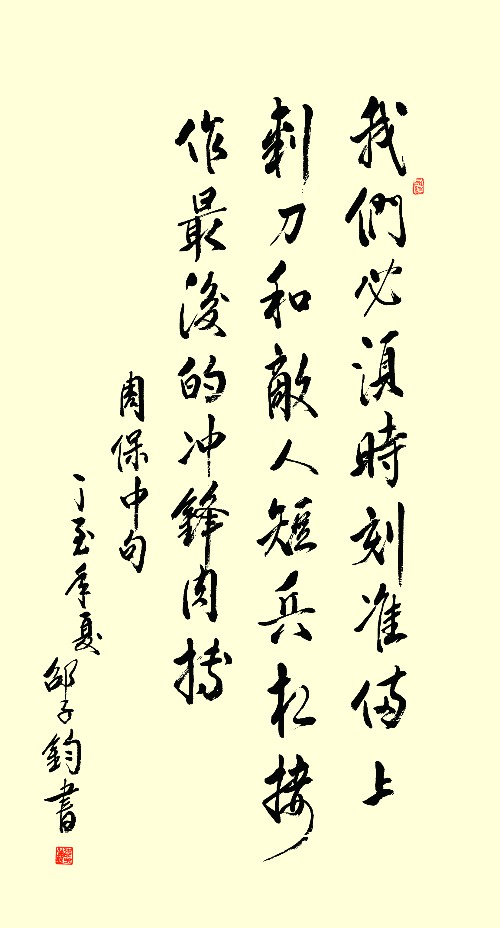 我們必須時刻准備上
刺刀和敵人短兵相接
作最後的冲鋒肉搏
周保中句
丁亥年夏
邵子鈞書